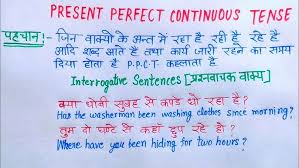 PRESENT PERFECT CONTINUOUS TENSE
पहचान:- जिन वाक्यों के अन्त में रहा है, रही है, रहे हैं
आदि शब्द आते हैं तथा कार्य जारी रहने का समय
दिया होता है P.P.C.T. कहलाता है
Interrogative Sentences [प्रश्नवाचक वाक्य]
क्या धोबी सुबह से कपड़े धो रहा है?
Has the washerman been washing clothes since morning?
तुम दो घण्टे से कहाँ छुप रहे हो?
Where have you been hiding for two hours?